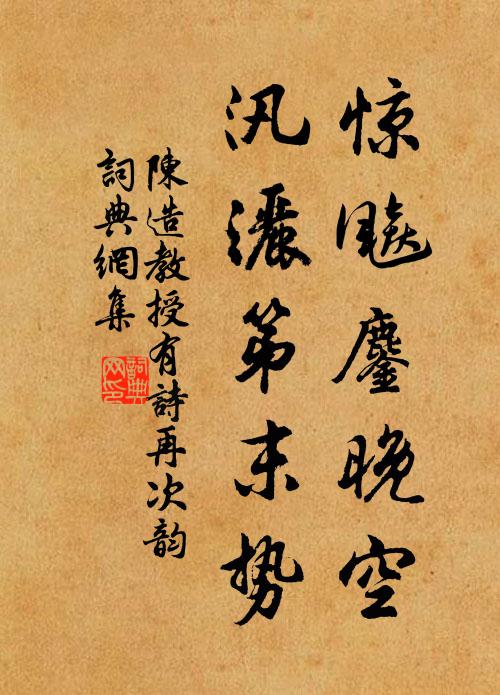 惊飈鏖晚空
汎灑第末势
陳造教授有詩再次韵
詞典網集
詞典网印